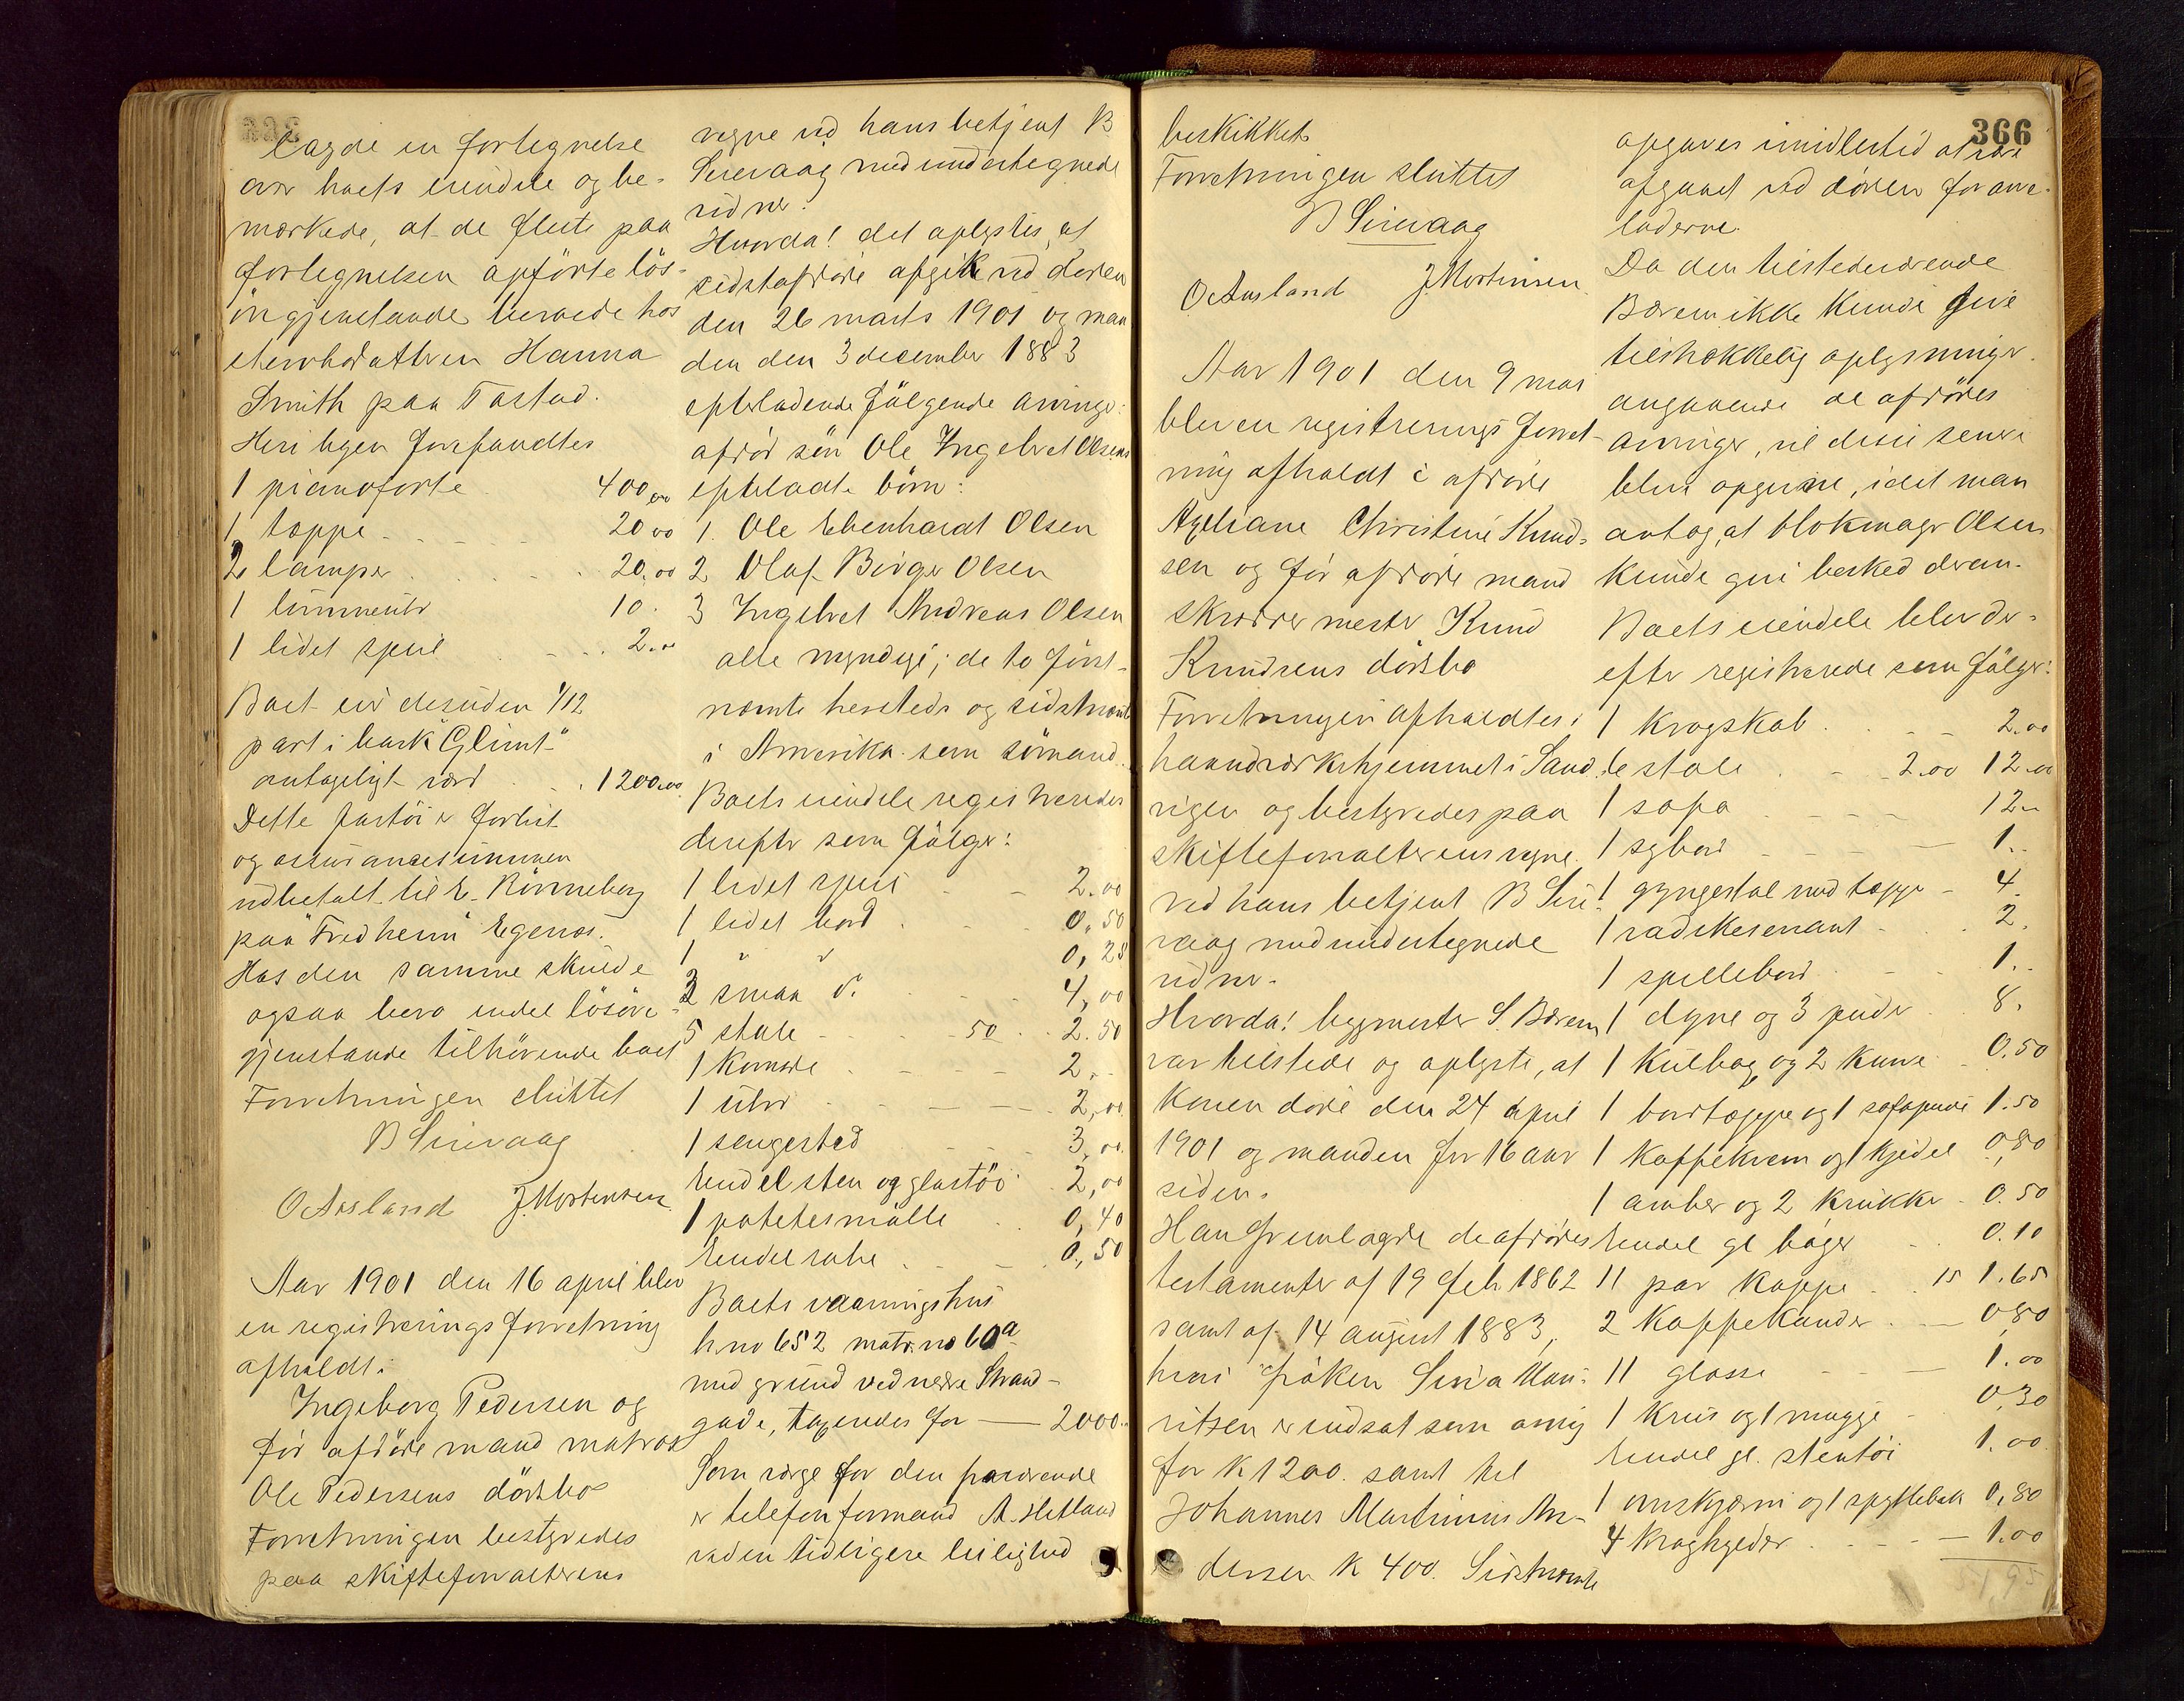 lagde en fortegnelse
over boets eiendele og be-
mærkede, at de fleste paa
fortegnelsen opförte lös-
öregjenstande beroede hos
Hanna
Smith paa Tastad.
Heri byen forefandtes
1 pianoforte 400,00
1 tæppe 20 00
2 lamper 20.00
1 10.
1 lidet speil 2.00
Boet eier desuden 1/12
part i bark "Glimt"
antageligt værd 1200.00
Dette fartöi er forlist
og assurancesummen
udbetalt til E. Rönneberg
paa "Fredheim" Egenæs.
Hos den samme skulde
ogsaa bero endel lösöre-
gjenstande tilhörende boet
Forretningen sluttet
B Sirevaag
O Aasland J. Mortensen
Aar 1901 den 16 april blev
en registreringsforretning
afholdt i
Ingeborg Pedersen og
för afdöde mand matros
Ole Pedersens dödsbo
Forretningen bestyredes
paa skifteforvalterens
vegne ved hans betjent B
Sirevaag med undertegnede
vidner.
Hvorda! det oplystes, at
sidstafdöde afgik ved döden
den 26 marts 1901 og man
den den 3 december 1883
efterladende fölgende arvinger:
afdöd sön Ole Ingebret Olsens
efterladte börn:
1. Ole Ebenhardt Olsen
2 Olaf Birger Olsen
3 Ingebret Andreas Olsen
alle myndige; de to först-
nævnte hersteds og sidstnævnte
i Amerika som sömand.
Boets eiendele registreredes
derefter som fölger:
1 lidet speil 2.00
1 lidet bord 0.50
1 " " 0,25
2 smaa do 4,00
5 stole 50 2.50
1 komode 2.
1 uhr 2,00
1 sengested 3,00
Endel sten og glastöi 2,00
1 potetesmölle 0,40
Endel 0,50
Boets vaaningshus
h.no 652 matr. no 60a
med grund ved nedre Strand-
gade, taxeredes for — 2000.
Som værge for den fraværende
er telefonformand A. Hetland
ved en tidligere leilighed
366
beskikket.
Forretningen sluttet
B Sirevaag
O Aasland J. Mortensen
Aar 1901 den 9 mai
blev en registreringsforret-
ning afholdt i afdöde
Christine Knud-
sen og för afdöde mand
skræddermester Knud
Knudsens dödsbo
Forretningen afholdtes i
haandværkerhjemmet i Sand-
vigen og bestyredes paa
skifteforvalterens vegne
ved hans betjent B Sire-
vaag med undertegnede
vidner.
Hvorda! bygmester S. Bærem
var tilstede og oplyste, at
konen döde den 24 april
1901 og manden for 16 aar
siden.
Han fremlagde de afdödes
testamenter af 19 feb. 1862
samt af 14 august 1883,
hvori fröken Sina Mau-
ritsen er indsat som arving
for K 1200. samt til
Johannes Martinius An-
dersen K 400. Sidstnævnte
opgaves imidlertid at være
afgaaet ved döden for arve-
laderne.
Da den tilstedeværende
Bærem ikke kunde give
tilstrækkelig oplysninger
angaaende de afdödes
arvinger, vil disse senere
blive opgivne, idet man
antog, at blokmager Olsen
kunde give besked derom.
Boets eiendele blev der-
efter registrerede som fölger:
1 krogskab 2.00
6 stole 2.00 12.00
1 sofa 12..
1 sybord 1..
1 gyngestol med tæppe 4.
1 radikeservant 2.
1 spillebord 1..
1 dyne og 3 puder 8.
1 kulbox og 2 kurve 0.50
1 bordtæppe og 1 sofapude 1.50
1 kaffekværn og 1 kjedel 0,80
1 amber og 2 krukker 0.50
Endel gl böger 0.10
11 par kopper 15 1.65
2 kaffekander 0,80
11 glasse 1.00
1 krus og 1 mugge 0,30
Endel gl. stentöi 1.00
1 ovnskjærm og 1 spyttebak 0,80
4 1.00